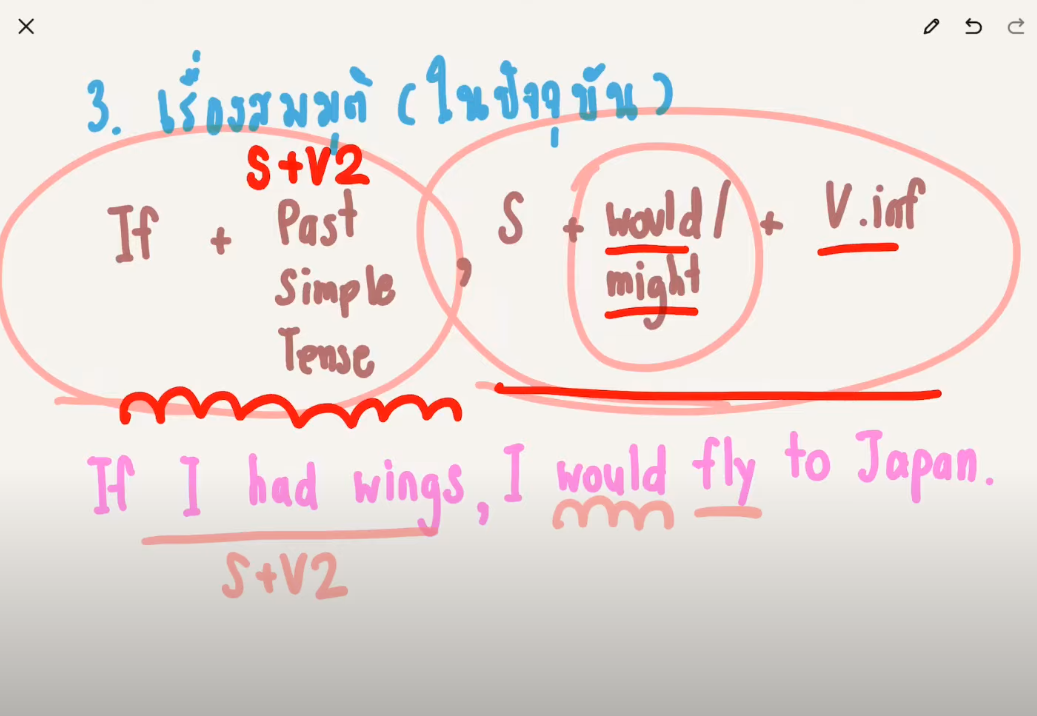 3. เรื่องสมมุติ (ในปัจจุบัน)
S+V2
If + Past Simple Tense, S + would/might + V.inf
If I had wings, I would fly to Japan.
S+V2